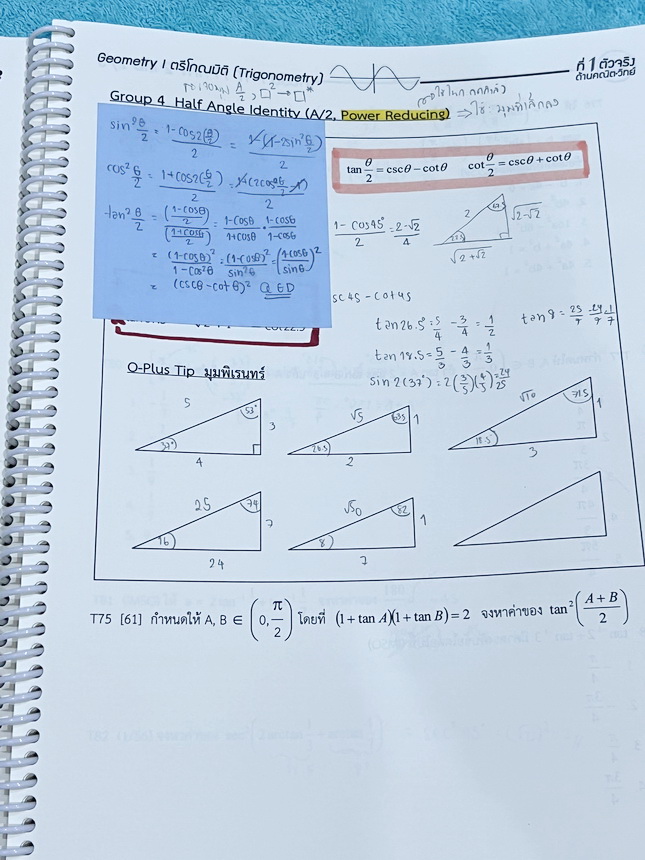 Geometry I ตรีโกณมิติ (Trigonometry)
ที่ 1 ตัวจริง
ด้านคณิตวิทย์
A/2 , □² → □*
Group 4 Half Angle Identity (A/2, Power Reducing) ⇒ ใช้
sin² θ/2 = (1-cos2(θ/2))/2 = (1-(1-2sin² θ/2))/2
cos² θ/2 = (1+cos2(θ/2))/2 = (1+(2cos² θ/2 -1))/2
tan² θ/2 = ((1-cosθ)/2)/((1+cosθ)/2) = (1-cosθ)/(1+cosθ) · (1-cosθ)/(1-cosθ)
= (1-cosθ)²/(1-cos²θ) = (1-cosθ)²/sin²θ = ((1-cosθ)/sinθ)²
= (cscθ-cotθ)² QED
tan θ/2 = cscθ - cotθ cot θ/2 = cscθ + cotθ
(1-cos45°)/2 = (2-√2)/4
2 67.5 √2-√2
22.5
√2+√2
sc45 - cot45
tan26.5° = 5/4 - 3/4 = 1/2
tan18.5 = 5/3 - 4/3 = 1/3
sin2(37°) = 2(3/5)(4/5) = 24/25
tan8 = 25/7 - 24/7 = 1/7
O-Plus Tip มุมพิเรนทร์
5 53° 3 37° 4
√5 63.5 1 26.5 2
√10 71.5 1 18.5 3
25 74 7 16 24
√50 82 1 8 7
T75 [61] กำหนดให้ A, B ∈ (0, π/2) โดยที่ (1+tan A)(1+tan B) = 2 จงหาค่าของ tan²((A+B)/2)